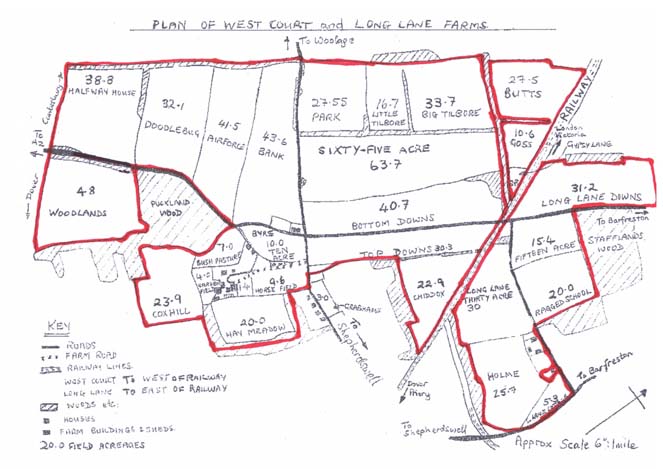 PLAN OF WEST COURT and LONG LANE FARMS
To Woolage
38.8
HALFWAY HOUSE
32.1
DOODLEBUG
41.5
AIRFORCE
43.6
BANK
27.55
PARK
16.7
LITTLE
TILBORE
33.7
BIG TILBORE
27.5
BUTTS
RAILWAY
10.6
GOSS
London
Victoria
GYPSY LANE
SIXTY-FIVE ACRE
63.7
To Canterbury
A2
Dover
48
WOODLANDS
PUCKLAND
WOOD
40.7
BOTTOM DOWNS
31.2
LONG LANE DOWNS
To Barfreston
STAFFLANDS
WOOD
TOP DOWNS 30.3
BYRE
7.0
BUSH PASTURE
10.0
TEN
ACRE
9.6
HORSE FIELD
23.9
COXHILL
20.0
HAY MEADOW
To
Shepherdswell
22.9
CHIDDOX
LONG LANE
THIRTY ACRE
30
15.4
FIFTEEN ACRE
20.0
RAGGED SCHOOL
HOLME
25.7
To Barfreston
Dover
Priory
To
Shepherdswell
Approx Scale 6":1mile
KEY
ROADS
FARM ROAD
RAILWAY LINES
WEST COURT To WEST OF RAILWAY
LONG LANE To EAST OF RAILWAY
WOODS etc.
HOUSES
FARM BUILDINGS & SHEDS
20.0 FIELD ACREAGES